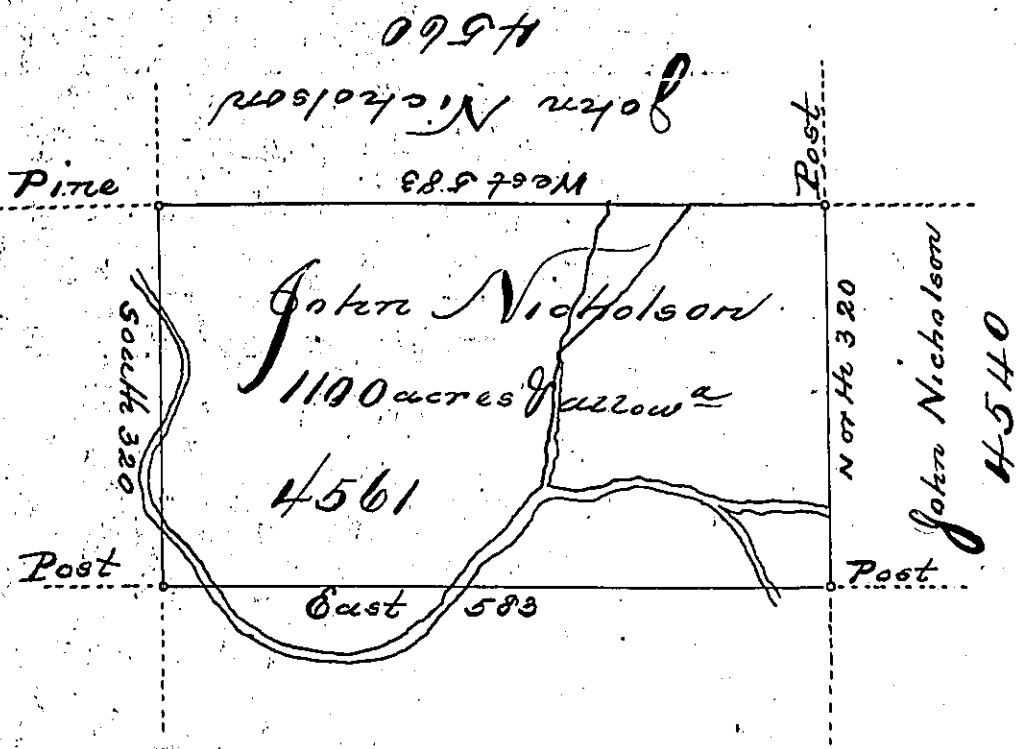 4560
John Nicholson
West 583
Pine
Post
John Nicholson
1100 acres & allowᵃ
4561
South 320
North 320
John Nicholson
4540
Post
East 583
Post